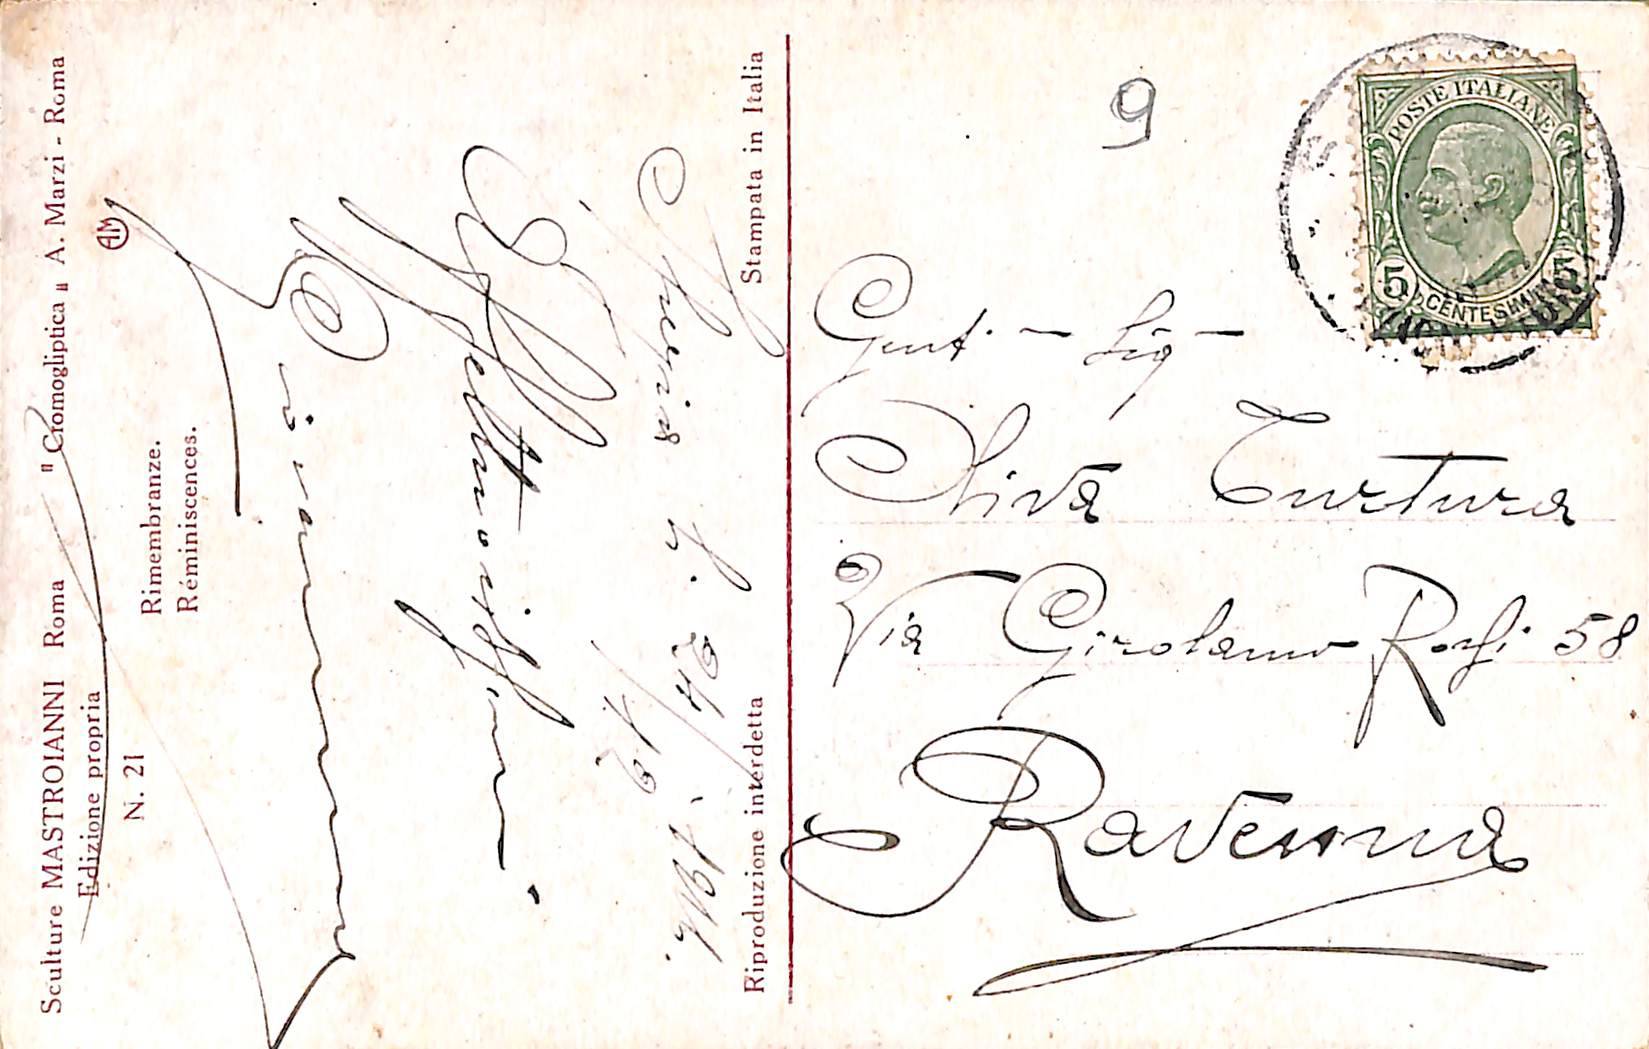 Sculture MASTROIANNI Roma "Cromogliptica" A. Marzi - Roma
Edizione propria
N. 21
AM
Rimembranze.
Réminiscences.
li 24
12
914.
Affettuosissimi
Riproduzione interdetta
Stampata in Italia
9
POSTE ITALIANE
5 CENTESIMI 5
Gent. - Sig -
Oliva Turtura
Via Girolamo Rossi 58
Ravenna